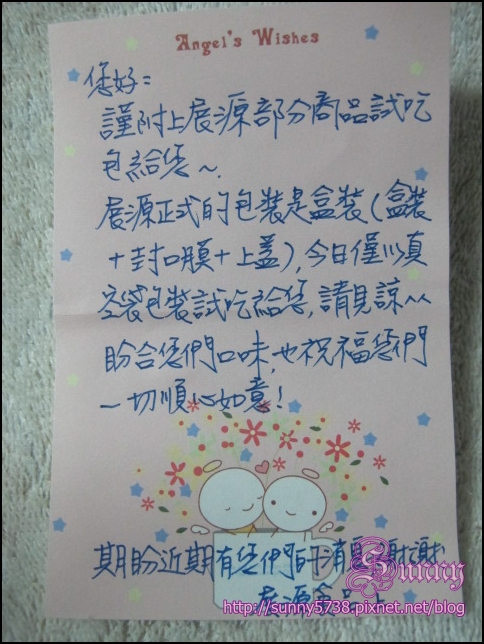 Angel's Wishes
您好：
謹附上展源部分商品試吃
包給您～.
展源正式的包裝是盒裝(盒裝
+封口膜+上蓋),今日僅以真
空袋包裝試吃給您,請見諒^^
盼合您們口味,也祝福您們
一切順心如意!
期盼近期有您們的消息,謝謝
展源食品上
Sunny
http://sunny5738.pixnet.net/blog